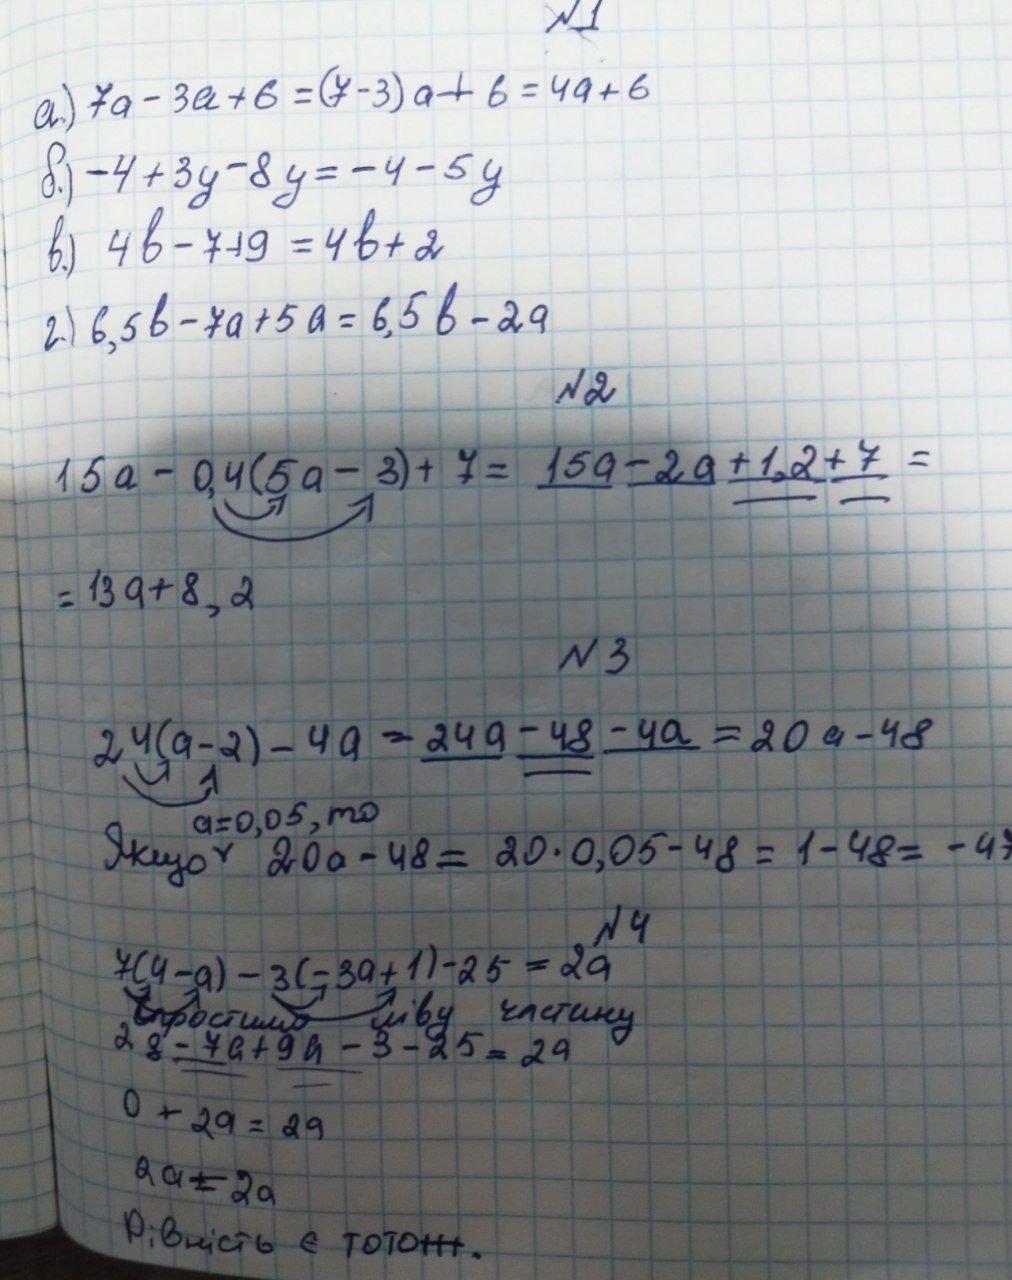 №1
а.) 7a - 3a + 6 = (7-3)a + 6 = 4a + 6
б.) -4 + 3y - 8y = -4 - 5y
в.) 4b - 7 + 9 = 4b + 2
г.) 6,5b - 7a + 5a = 6,5b - 2a
№2
15a - 0,4(5a - 3) + 7 = 15a - 2a + 1,2 + 7 =
= 13a + 8,2
№3
24(a-2) - 4a = 24a - 48 - 4a = 20a - 48
a=0,05, то
Якщо 20a - 48 = 20·0,05 - 48 = 1 - 48 = -47
№4
7(4-a) - 3(-3a+1) - 25 = 2a
Спростимо ліву частину
28 - 7a + 9a - 3 - 25 = 2a
0 + 2a = 2a
2a = 2a
Рівність є тотож.